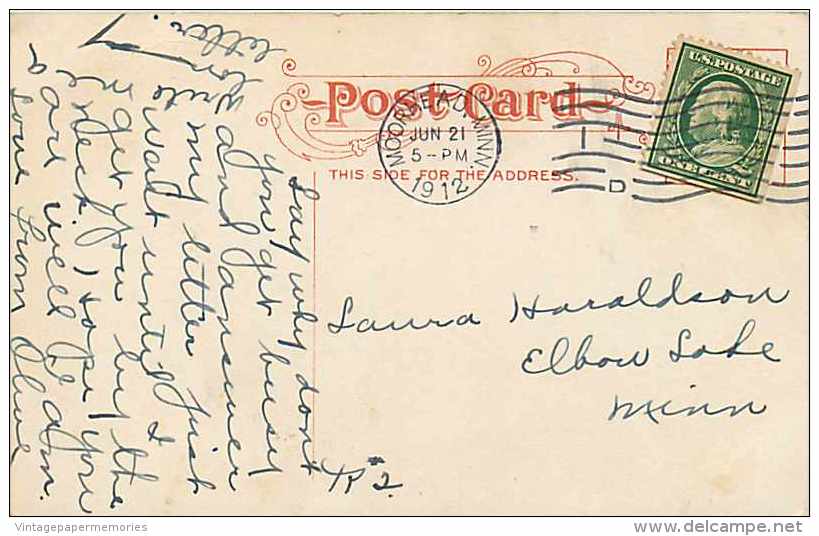 Post Card
THIS SIDE FOR THE ADDRESS.
MOORHEAD, MINN.
JUN 21
5-PM
1912
D
U.S. POSTAGE
ONE CENT
Laura Haraldson
Elbow Lake
Minn
R #2.
Say why dont
you get busy
and answer
my letter just
wait until I
get you by the
neck, I hope you
are well I am.
Love from Olive
a
long
letter.
Vintagepapermemories
delcampe.net